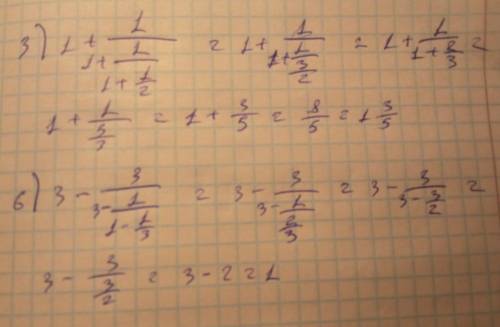 3) 1 + 1/(1 + 1/(1 + 1/2)) = 1 + 1/(1 + 1/(3/2)) = 1 + 1/(1 + 2/3) =
1 + 1/(5/3) = 1 + 3/5 = 8/5 = 1 3/5
6) 3 - 3/(3 - 1/(1 - 1/3)) = 3 - 3/(3 - 1/(2/3)) = 3 - 3/(3 - 3/2) =
3 - 3/(3/2) = 3 - 2 = 1